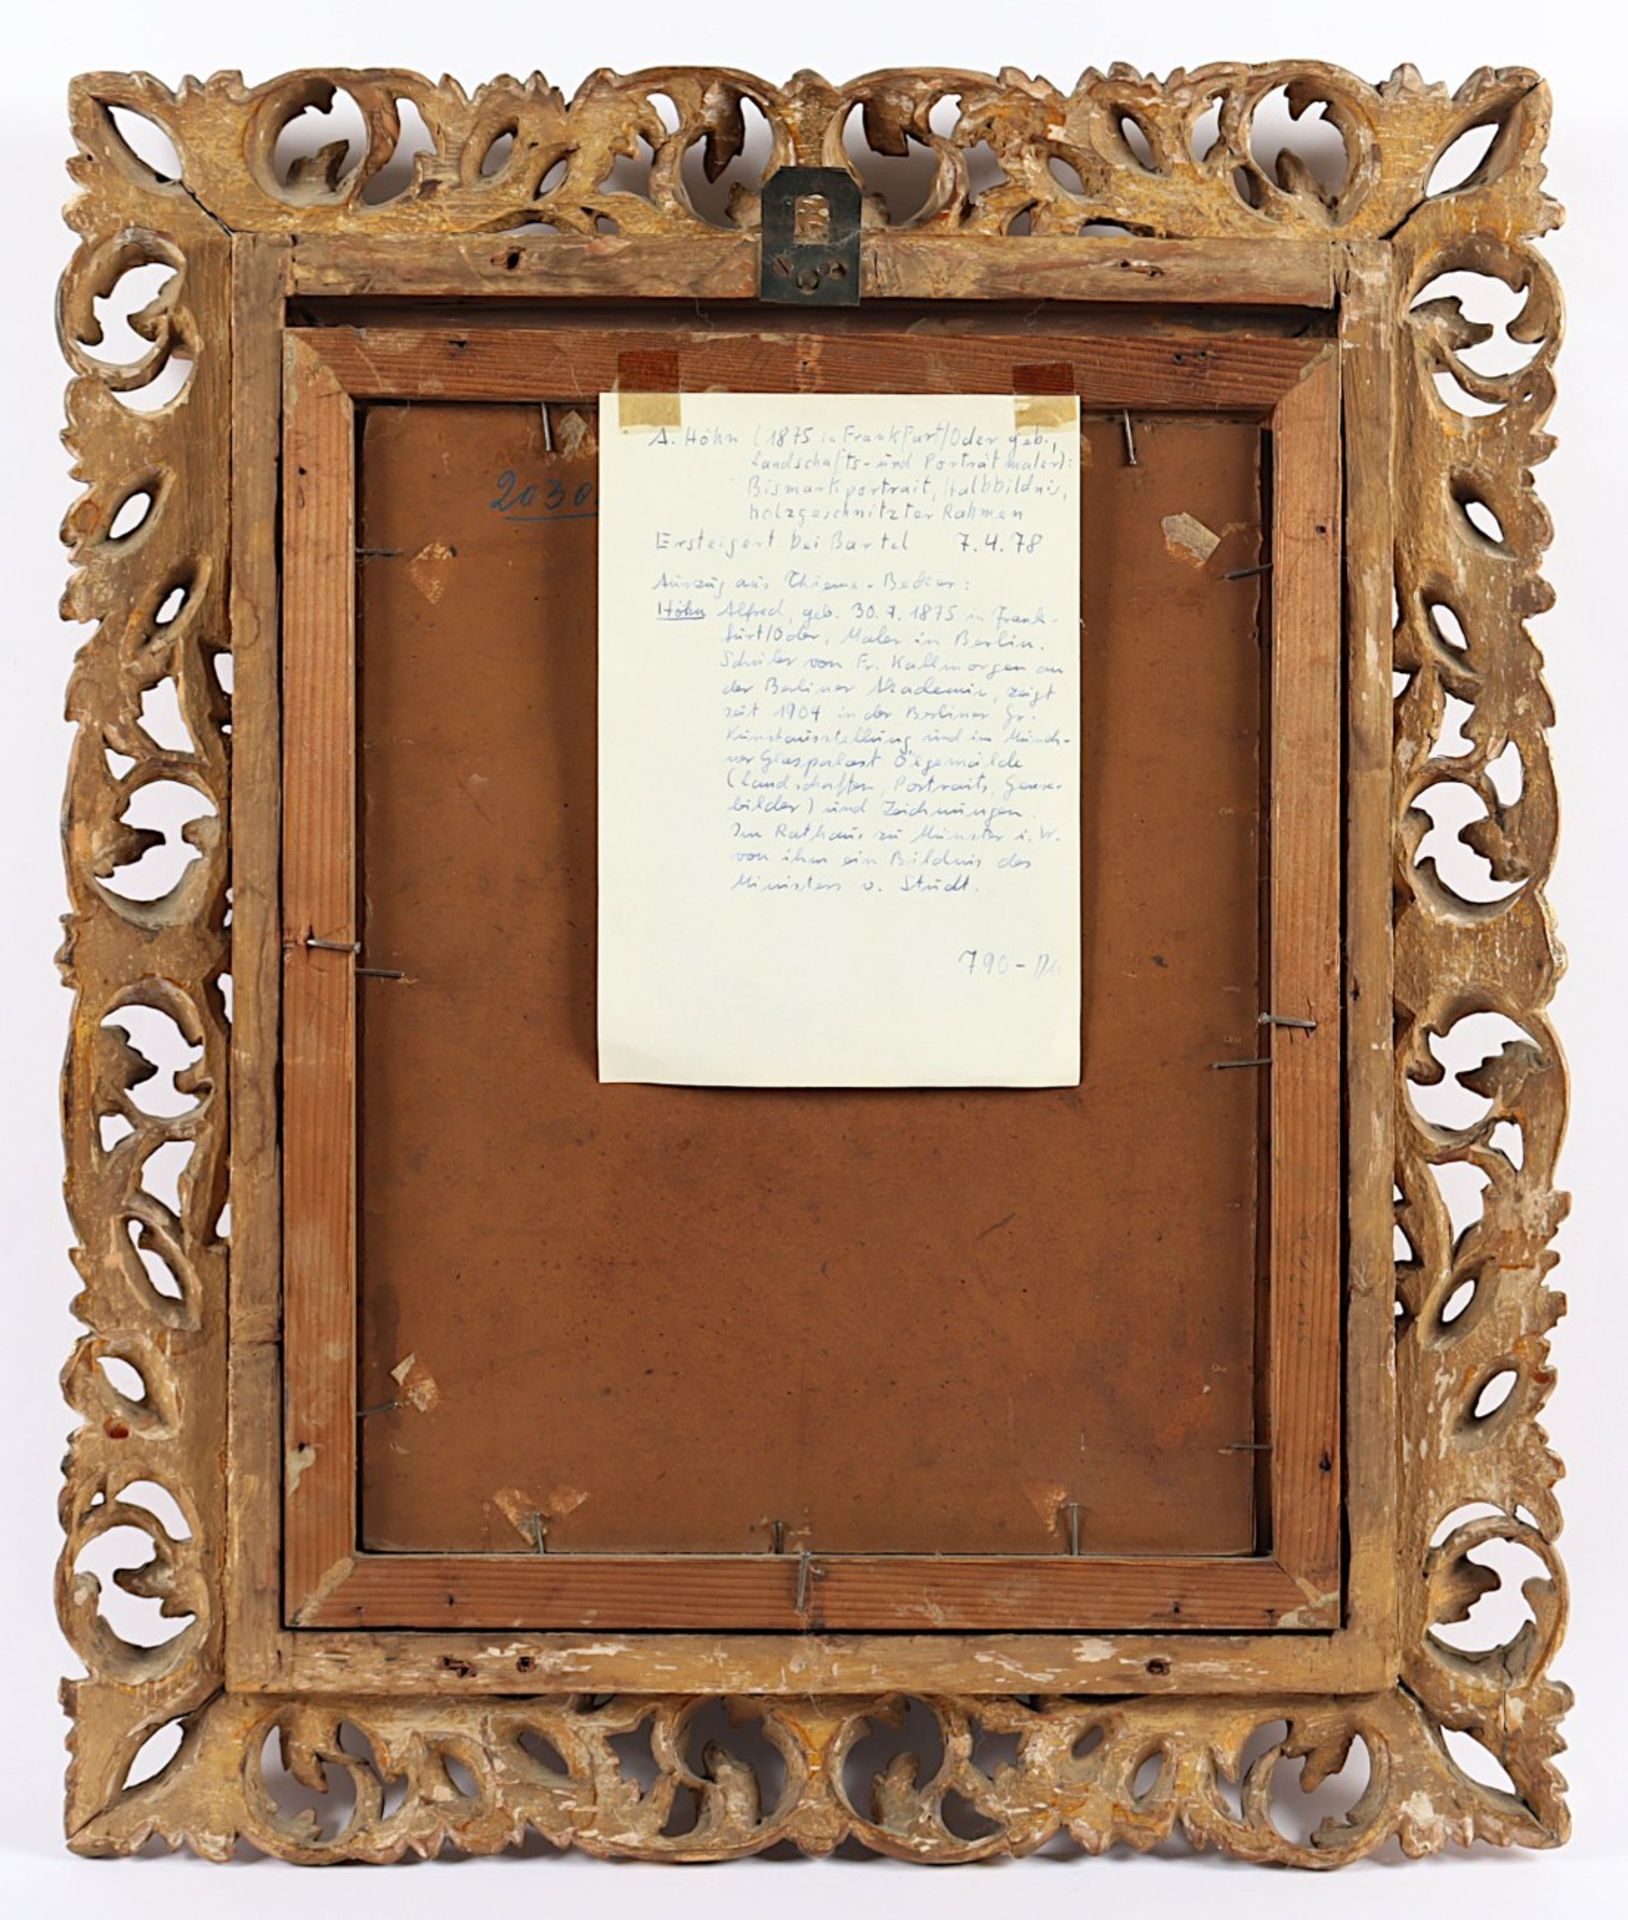 A. Höhn (1875 in Frankfurt/Oder geb.,
Landschafts- und Porträtmaler):
Bismarkportrait, Halbbildnis,
holzgeschnitzter Rahmen
Ersteigert bei Bartel 7.4.78
Auszug aus Thieme-Becker:
Höhn Alfred, geb. 30.7.1875 in Frank-
furt/Oder, Maler in Berlin.
Schüler von Fr. Kallmorgen an
der Berliner Akademie, zeigt
seit 1904 in der Berliner Gr.
Kunstausstellung und im Münch-
ner Glaspalast Ölgemälde
(Landschaften, Portraits, Genre-
bilder) und Zeichnungen.
Im Rathaus zu Münster i. W.
von ihm ein Bildnis des
Ministers v. Studt.
790-
2030